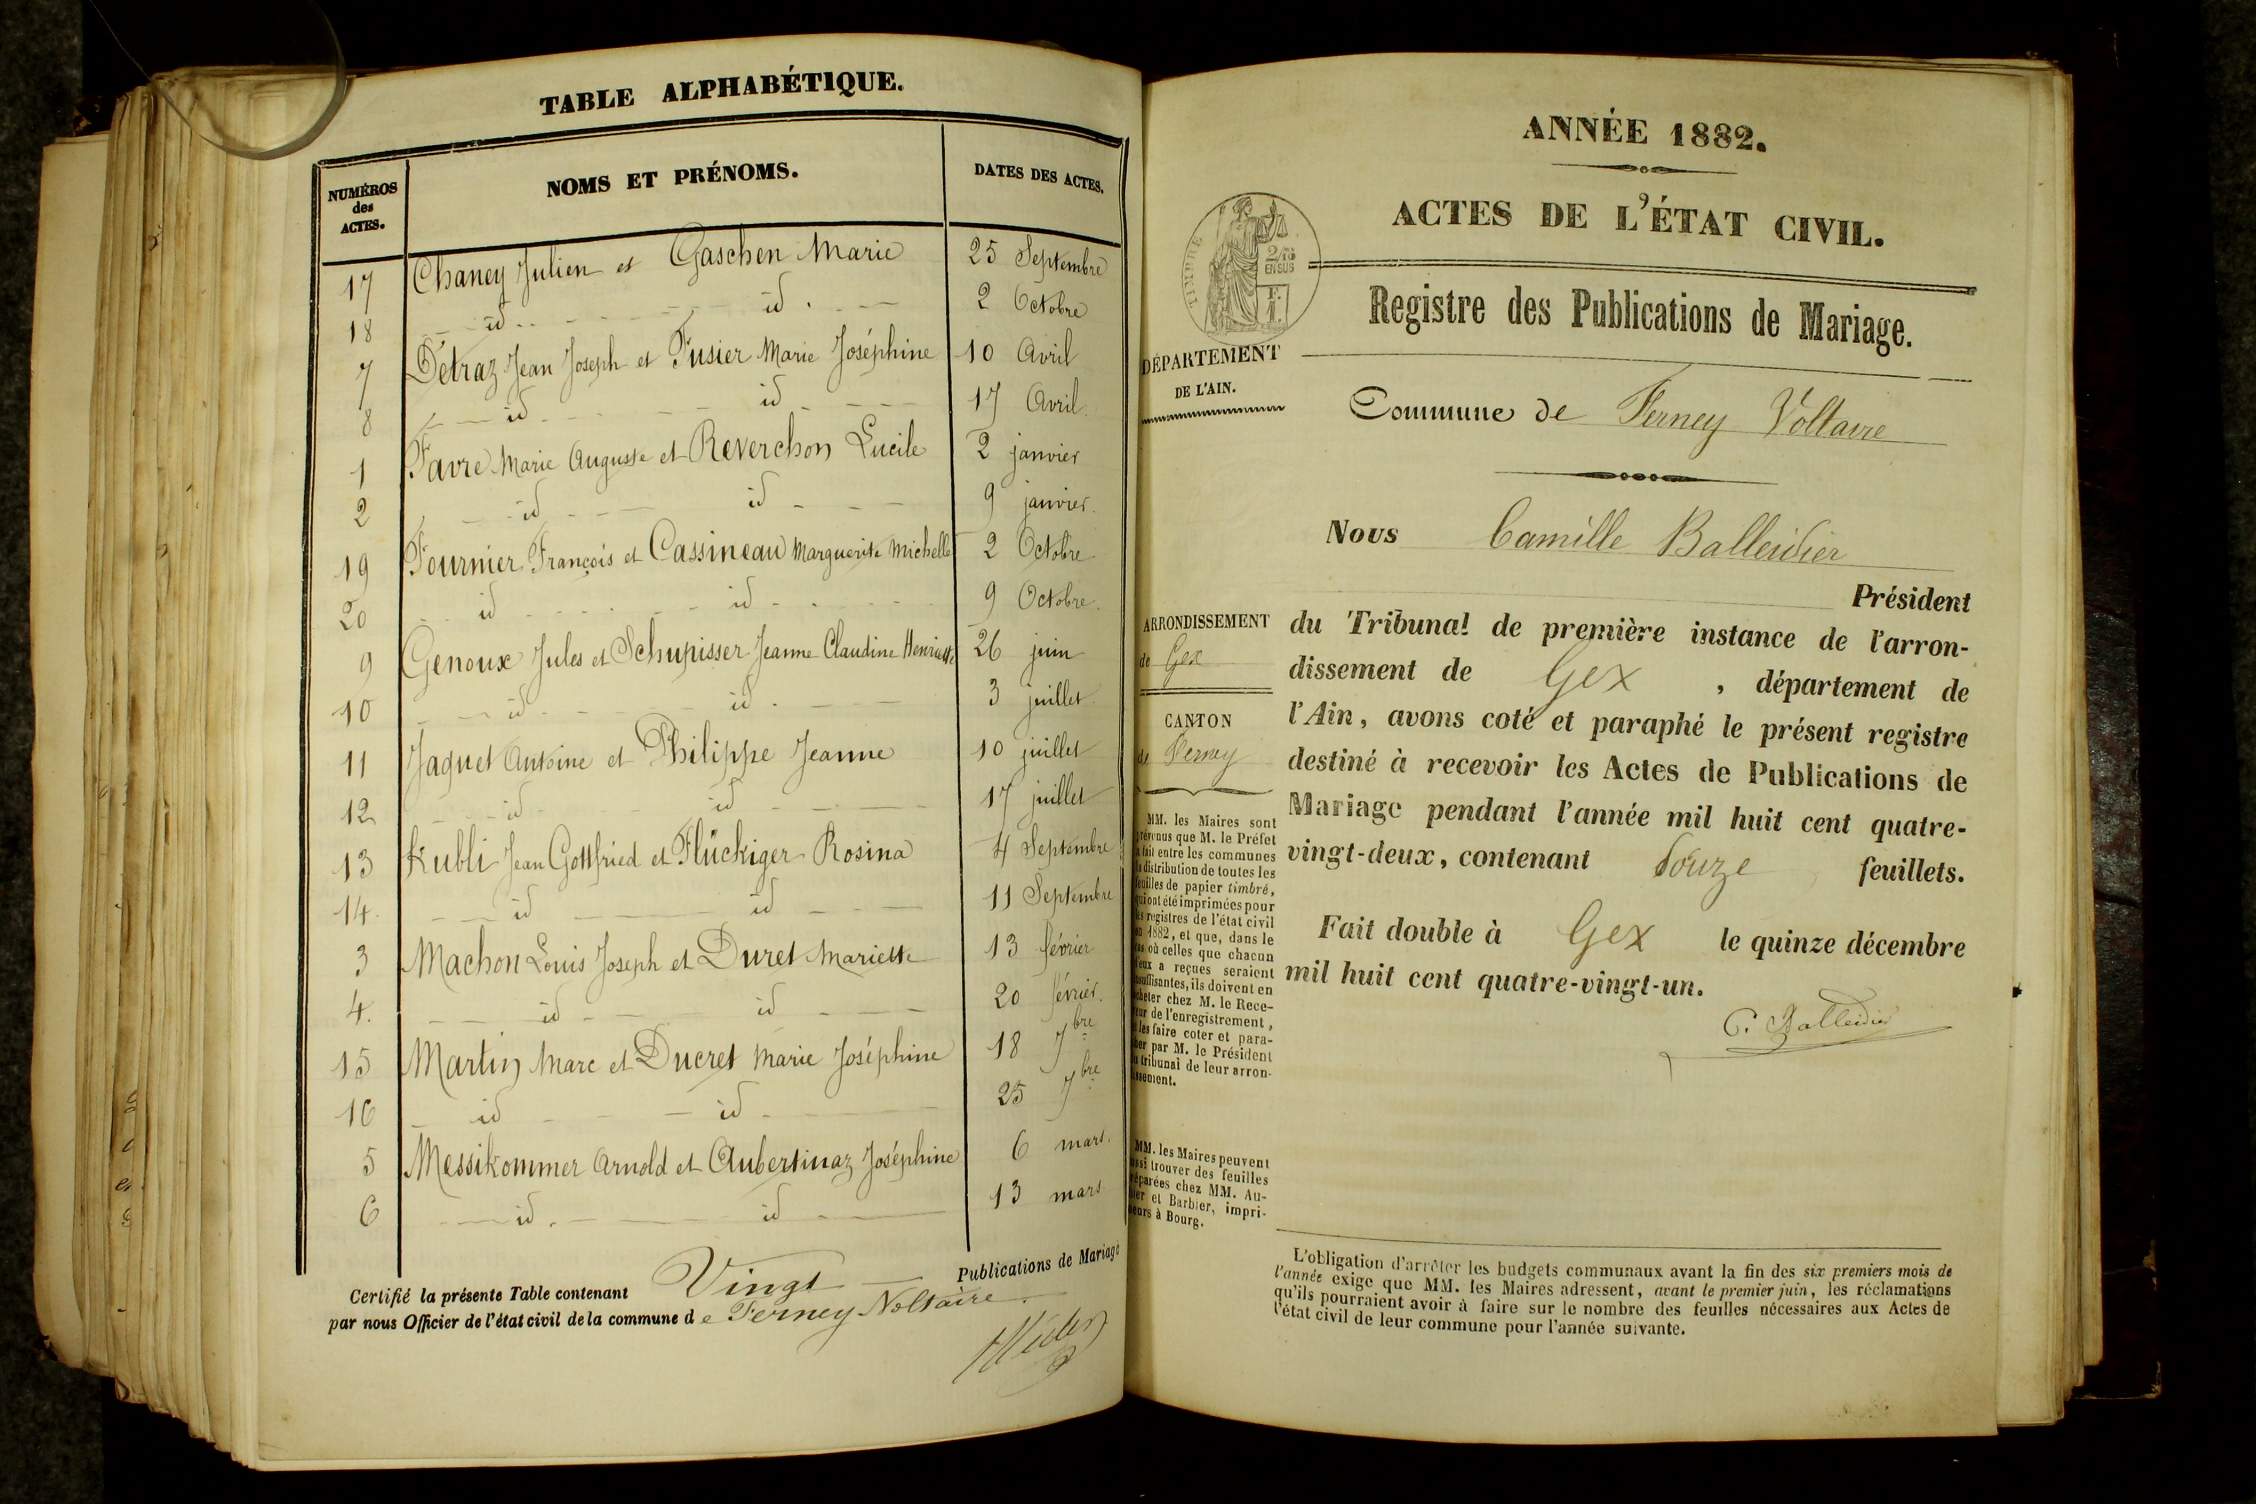 TABLE ALPHABÉTIQUE.
NUMÉROS des ACTES. NOMS ET PRÉNOMS. DATES DES ACTES.
17 Chaney Julien et Gaschen Marie 25 Septembre
18 id id 2 Octobre
7 Détraz Jean Joseph et Fusier Marie Joséphine 10 Avril
8 id id 17 Avril.
1 Favre Marie Auguste et Reverchon Lucile 2 janvier
2 id id 9 janvier.
19 Fournier François et Cassineau Marguerite Michelle 2 Octobre
20 id id 9 Octobre.
9 Genoux Jules et Schupisser Jeanne Claudine Henriette 26 juin
10 id id 3 juillet
11 Jaquet Antoine et Philippe Jeanne 10 juillet
12 id id 17 juillet
13 Kubli Jean Gottfried et Flückiger Rosina 4 Septembre
14. id id 11 Septembre
3 Machon Louis Joseph et Duret Mariette 13 février
4. id id 20 février.
15 Martin Marc et Ducret Marie Joséphine 18 7bre
16 id id 25 7bre
5 Messikommer Arnold et Aubertinaz Joséphine 6 mars.
6 id. id 13 mars
Certifié la présente Table contenant Vingt Publications de Mariage
par nous Officier de l'état civil de la commune de Ferney Voltaire
ANNÉE 1882.
ACTES DE L'ÉTAT CIVIL.
TIMBRE
2/10
EN SUS
Registre des Publications de Mariage.
DÉPARTEMENT
DE L'AIN.
Commune de Ferney Voltaire
Nous Camille Balleidier
Président
ARRONDISSEMENT
de Gex
CANTON
de Ferney
du Tribunal de première instance de l'arron-
dissement de Gex, département de
l'Ain, avons coté et paraphé le présent registre
destiné à recevoir les Actes de Publications de
Mariage pendant l'année mil huit cent quatre-
vingt-deux, contenant douze feuillets.
Fait double à Gex le quinze décembre
mil huit cent quatre-vingt-un.
C. Balleidier
MM. les Maires sont
prévenus que M. le Préfet
a fait entre les communes
la distribution de toutes les
feuilles de papier timbré,
qui ont été imprimées pour
les registres de l'état civil
en 1882, et que, dans le
cas où celles que chacun
d'eux a reçues seraient
insuffisantes, ils doivent en
acheter chez M. le Rece-
veur de l'enregistrement,
et les faire coter et para-
pher par M. le Président
du tribunal de leur arron-
dissement.
MM. les Maires peuvent
aussi trouver des feuilles
préparées chez MM. Au-
et Barbier, impri-
meurs à Bourg.
L'obligation d'arrêter les budgets communaux avant la fin des six premiers mois de
l'année exige que MM. les Maires adressent, avant le premier juin, les réclamations
qu'ils pourraient avoir à faire sur le nombre des feuilles nécessaires aux Actes de
l'état civil de leur commune pour l'année suivante.